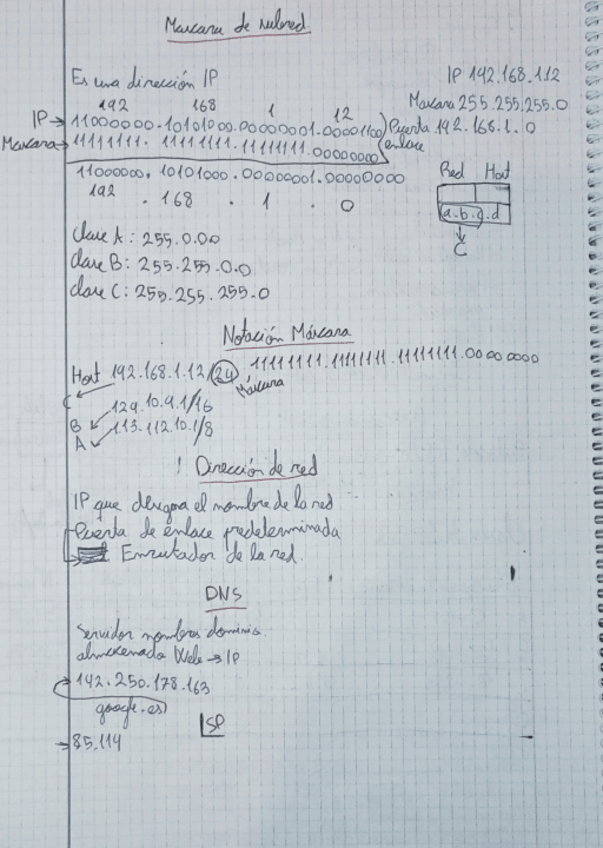 Mascara de subred
Es una dirección IP
IP 192.168.1.12
Mascara 255.255.255.0
192 168 1 12
IP → 11000000.10101000.00000001.00001100
Puerta enlace 192.168.1.0
Mascara → 11111111.11111111.11111111.00000000
11000000.10101000.00000001.00000000
192 . 168 . 1 . 0
Red Host
a.b.c.d
C
Clase A: 255.0.0.0
clase B: 255.255.0.0
clase C: 255.255.255.0
Notación Máscara
Host 192.168.1.12/24 11111111.11111111.11111111.00000000
Máscara
C
B 129.10.9.1/16
A 113.112.10.1/8
! Dirección de red
IP que designa el nombre de la red
Puerta de enlace predeterminada
Enrutador de la red.
DNS
Servidor nombres dominio
almacenada Web → IP
142.250.178.163
google.es
ISP
→ 85.114